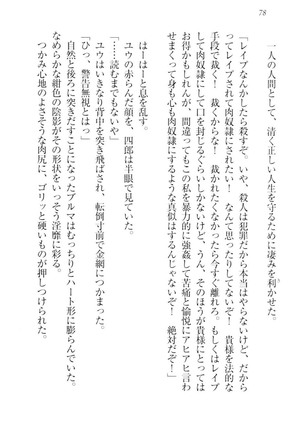 78
一人の人間として、清く正しい人生を守るために凄みを利かせた。
「レイプなんかしたら殺すぞ。いや、殺人は犯罪だから本当はやらないけど、だからってレイプされて肉奴隷にされたいなんて思ったりしてないぞ！　貴様を法的な手段で裁くぞ！　裁くからな！　裁かれたくなかったら今すぐ離れろ。もしくはレイプして肉奴隷にして口を封じるぐらいしかないけど、うん、そのほうが貴様にとってはお得かもしれんが、間違ってもこの私を暴力的に強姦して苦痛と愉悦にアヒアヒ言わせまくって身も心も肉奴隷にするような真似はするんじゃないぞ！　絶対だぞ！」
はーはーと息を乱す。
ユウの赤らんだ顔を、四郎は半眼で見ていた。
「……読むまでもないや」
ユウはいきなり背中を突き飛ばされ、転倒寸前で金網につかまった。
「ひっ、警告無視とはっ」
自然と後ろに突きだすことになったブルマはむっちりとハート形に膨らんでいた。
なめらかな紺色の陰影がその形状をいっそう淫靡に彩る。
つかみ心地のよさそうな肉尻に、ゴリッと硬いものが押しつけられた。